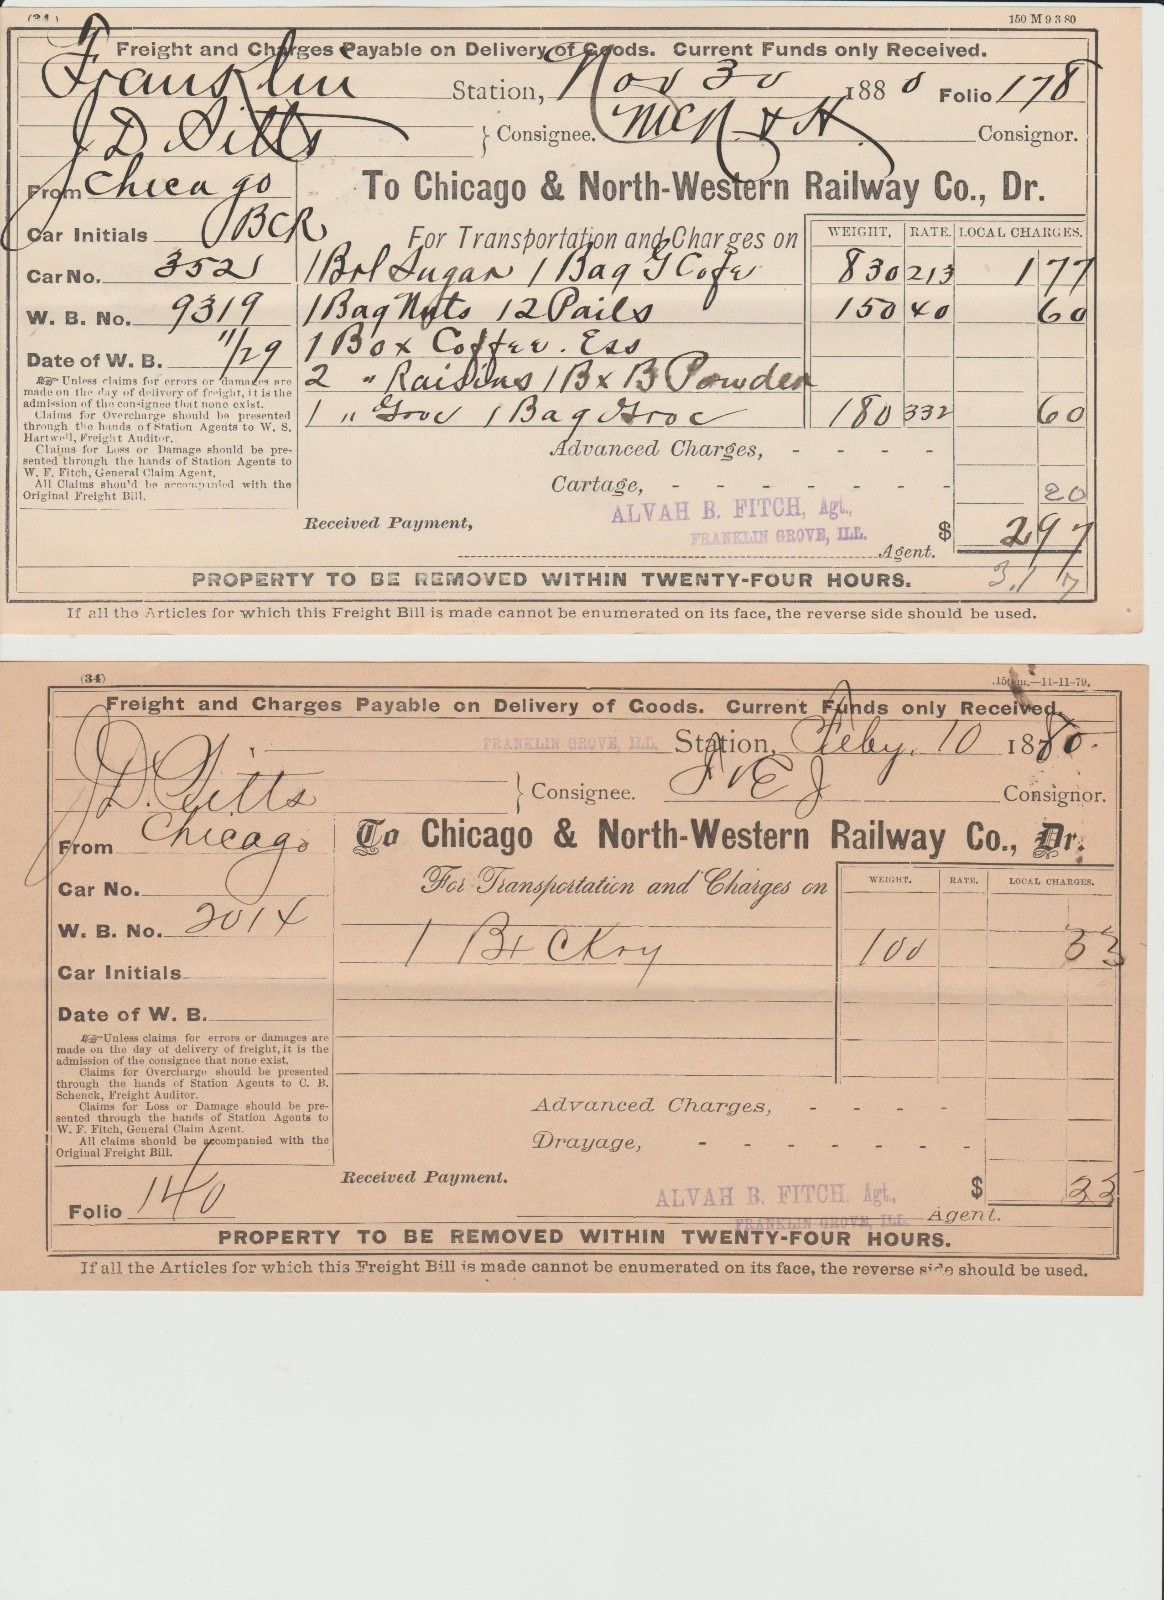 (34) 150 M 9 3 80
Freight and Charges Payable on Delivery of Goods. Current Funds only Received.
Franklin Station, Nov 30 1880 Folio 178
J D Sitts } Consignee. McN & H Consignor.
From Chicago To Chicago & North-Western Railway Co., Dr.
Car Initials BCR For Transportation and Charges on WEIGHT, RATE. LOCAL CHARGES.
Car No. 3521 1 Brl Sugar 1 Bag G Cofe 830 213 1 77
W. B. No. 9319 1 Bag Nuts 12 Pails 150 40 60
Date of W. B. 11/29 1 Box Coffee. Ess
2 " Raisins 1 Bx B Powder
1 " Groc 1 Bag Groc 180 332 60
Unless claims for errors or damages are
made on the day of delivery of freight, it is the
admission of the consignee that none exist.
Claims for Overcharge should be presented
through the hands of Station Agents to W. S.
Hartwell, Freight Auditor.
Claims for Loss or Damage should be pre-
sented through the hands of Station Agents to
W. F. Fitch, General Claim Agent.
All Claims should be accompanied with the
Original Freight Bill.
Advanced Charges, - - - -
Cartage, - - - - - - - 20
ALVAH B. FITCH, Agt.,
Received Payment, FRANKLIN GROVE, ILL. $ 2 97
Agent.
PROPERTY TO BE REMOVED WITHIN TWENTY-FOUR HOURS. 3.17
If all the Articles for which this Freight Bill is made cannot be enumerated on its face, the reverse side should be used.
(34) 150m.—11-11-79.
Freight and Charges Payable on Delivery of Goods. Current Funds only Received.
FRANKLIN GROVE, ILL. Station, Feby. 10 1880.
J D. Sitts } Consignee. Consignor.
From Chicago To Chicago & North-Western Railway Co., Dr.
Car No. For Transportation and Charges on WEIGHT. RATE. LOCAL CHARGES.
W. B. No. 2014 1 Bx CKry 100 33
Car Initials
Date of W. B.
Unless claims for errors or damages are
made on the day of delivery of freight, it is the
admission of the consignee that none exist.
Claims for Overcharge should be presented
through the hands of Station Agents to C. B.
Schenck, Freight Auditor.
Claims for Loss or Damage should be pre-
sented through the hands of Station Agents to
W. F. Fitch, General Claim Agent.
All claims should be accompanied with the
Original Freight Bill.
Advanced Charges, - - - -
Drayage, - - - - - - -
Received Payment. ALVAH B. FITCH, Agt., $ 33
Folio 140 FRANKLIN GROVE, ILL. Agent.
PROPERTY TO BE REMOVED WITHIN TWENTY-FOUR HOURS.
If all the Articles for which this Freight Bill is made cannot be enumerated on its face, the reverse side should be used.